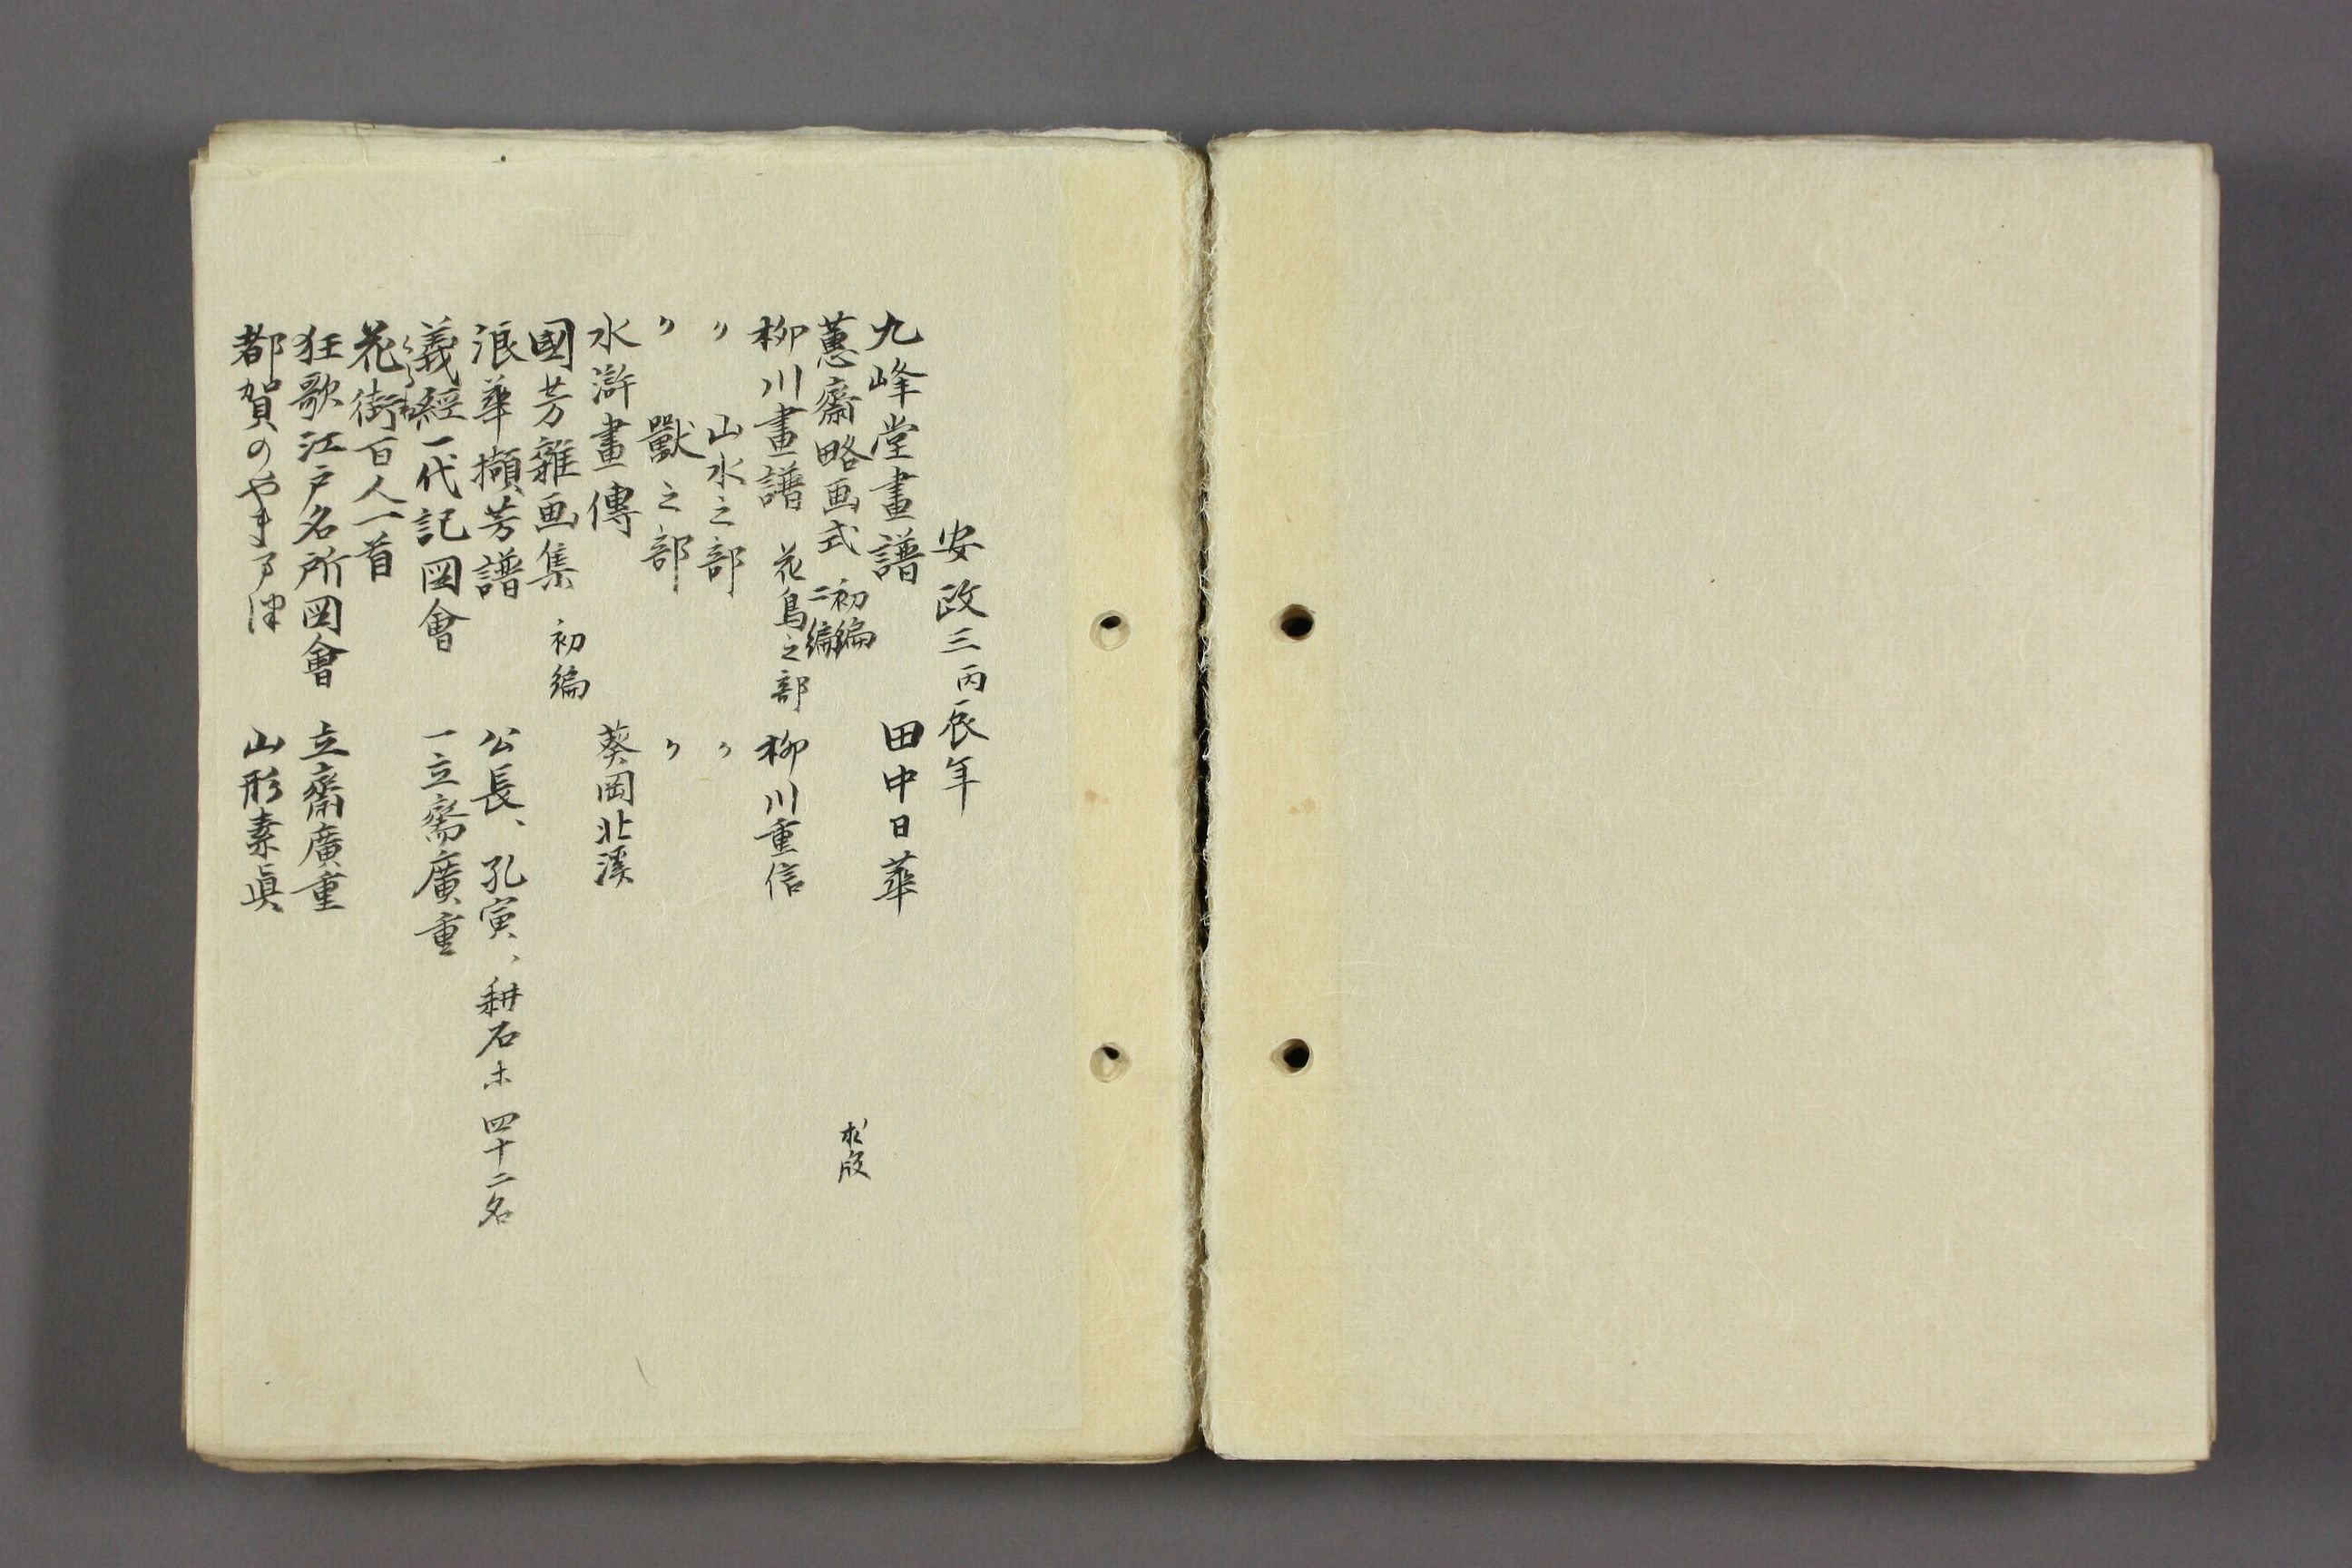 安政三丙辰年
九峰堂畫譜 田中日華
蕙齋略画式 初編 二編 求版
柳川畫譜 花鳥之部 柳川重信
〃 山水之部 〃
〃 獸之部 〃
水滸畫傳 葵岡北溪
國芳雜画集 初編
浪華擷芳譜 公長、孔寅、耕石ホ 四十二名
義經一代記図會 一立齋廣重
花街百人一首
狂歌江戸名所図會 立齋廣重
都賀のやま津 山形素眞